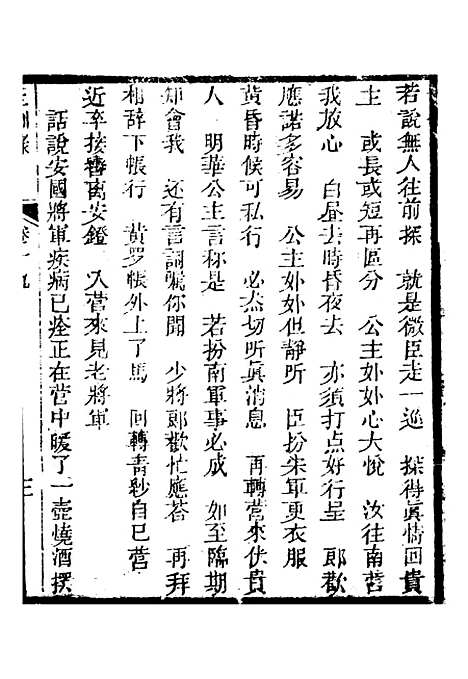 若說無人往前探　就是微臣走一巡　探得眞情回貴
主　或長或短再區分　公主妙妙心大悅　汝往南营
我放心　白昼去時昏夜去　亦須打点好行呈　郎歡
應諾多容易　公主妙妙但靜听　臣扮宋軍更衣服
黄昏時候可私行　必杰切听眞消息　再轉营來供貴
人　明華公主言称是　若扮南軍事必成　如至臨期
却會我　还有言詞嘱你聞　少將郎歡忙應荅　再拜
相辞下帳行　黄罗帳外上了馬　回轉青紗自己营
近卒接着离安鐙　入营來見老將軍
話說安國將軍疾病已痊正在营中暖了一壺燒酒撰
卷十九
三